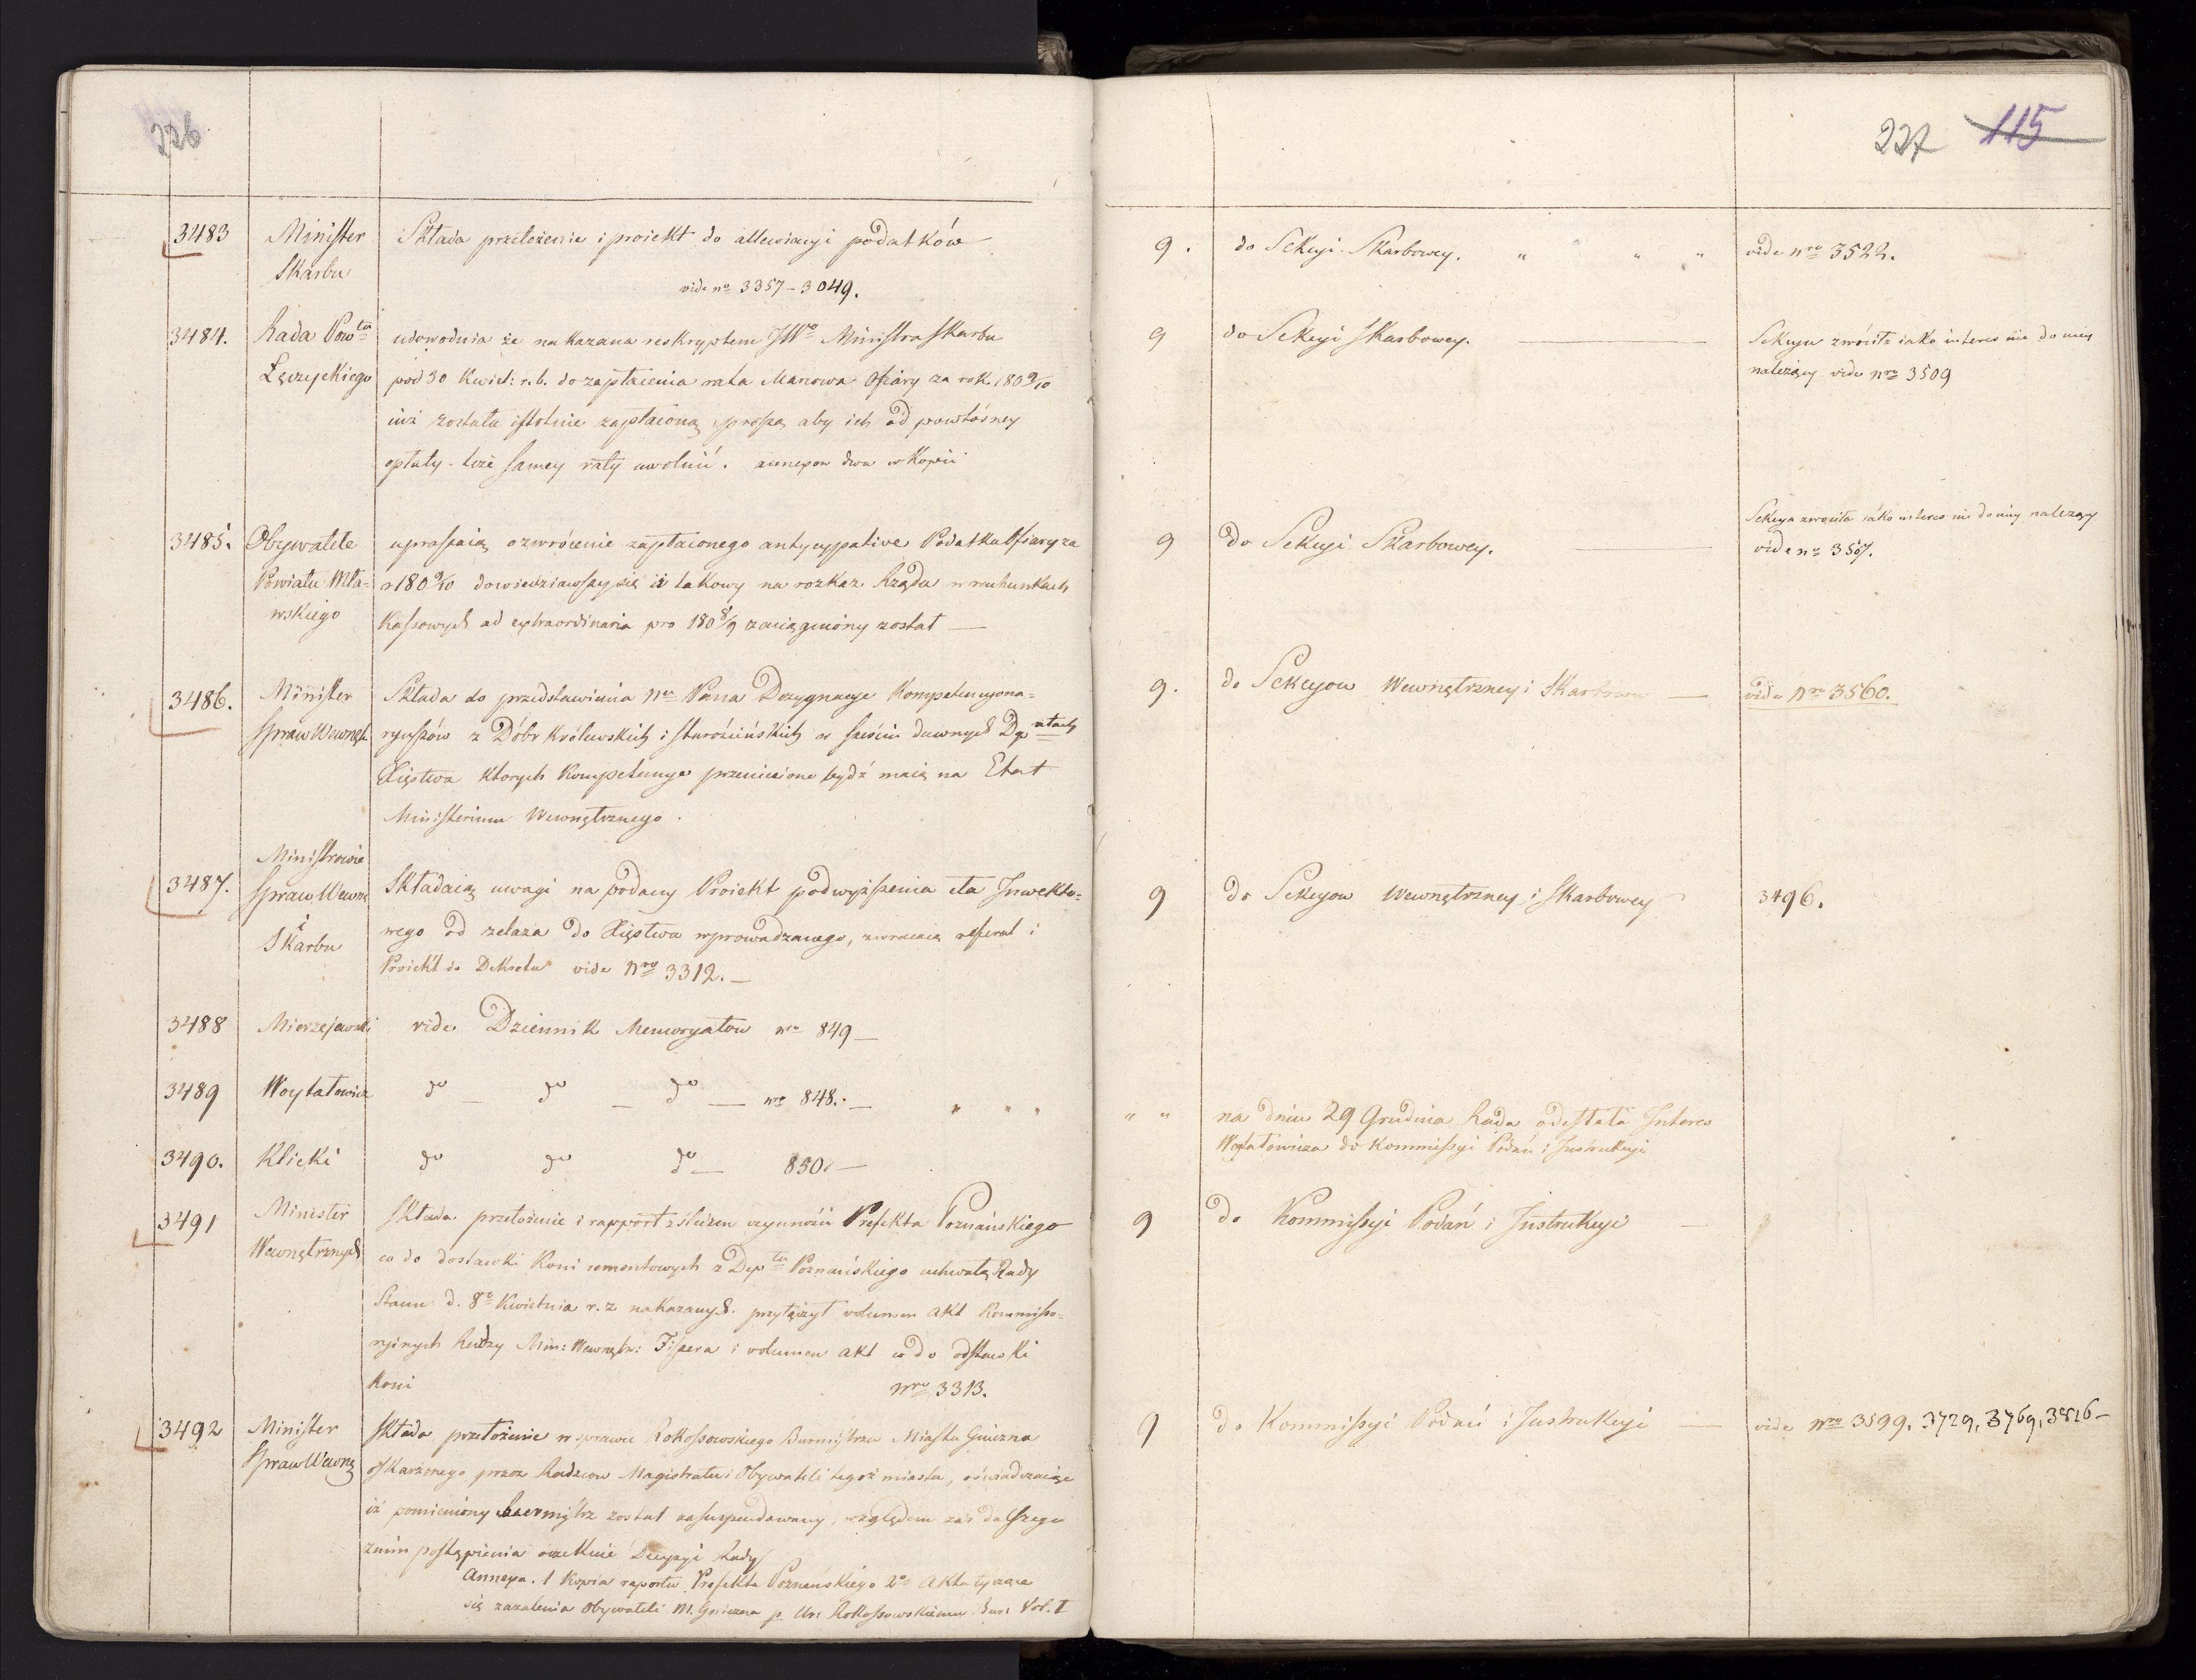 226
3483 Minister Składa przełożenie i proiekt do allewiacyi podatków
Skarbu
vide nro 3357 – 3049.
3484. Rada Powtu udowodnia że nakazana reskryptem JWo Ministra Skarbu
Łęczyckiego pod 30 Kwiet: r. b. do zapłacenia rata Marcowa Ofiary za rok 1809/10
iuż została istotnie zapłaconą, proszą aby ich od powtórney
opłaty teże samey raty uwolnić. annexa dwa w Kopii
3485. Obywatele upraszaią o zwrócenie zapłaconego antycypative Podatku Ofiary za
Powiatu Mła- r 1809/10 dowiedziawszy się iż takowy na rozkaz Rządu w rachunkach
wskiego Kassowych ad extraordinaria pro 1808/9 zaciągniony został —
3486. Minister Składa do przedstawienia Pana Dezygnacye Kompetencyona-
Spraw Wewnęt. ryuszów z Dóbr Królewskich i Starościńskich w sześciu dawnych Dptach
Xięstwa ktorych Kompetencye przeniesione bydź maią na Etat
Ministerium Wewnętrznego.
Ministrowie
3487. Spraw Wewn Składaią uwagi na podany Proiekt podwyższenia cła Inwekto-
i
wego od żelaza do Xięstwa wprowadzanego, zwracaią referat i
Skarbu
Proiekt do Dekretu vide Nro 3312. —
3488 Mierzejewski vide Dziennik Memoryałow nro 849 —
3489 Woytatowicz do — do — do — nro 848. — " " "
3490. Klicki do do do — 850. —
3491 Minister Składa przełożenie i rapport z śledzeń czynności Prefekta Poznańskiego
Wewnętrznych co do dostawki Koni remontowych z Depttu Poznańskiego uchwałą Rady
Stanu d. 8o Kwietnia r. z nakazanych. przyłączył volumen akt Kommisso-
ryinych Radzcy Min: Wewnętr: Fiszera i volumen akt co do odstawki
Koni Nro 3313.
3492 Minister Składa przełożenie w sprawie Rokossowskiego Burmistrza Miasta Gniezna
Spraw Wewnę oskarżonego przez Radzcow Magistratu i Obywateli tegoż miasta, oświadczaiąc
iż pomieniony Burmistrz został zasuspendowany, względem zaś dalszego
z nim postąpienia oczekuie Decyzyi Rady
Annexa. 1 Kopia raportu Prefekta Poznańskiego 2o Akta tyczące
się zażalenia Obywateli M. Gniezna p. Ur. Rokossowskiemu Vol. I
227 115
9. do Sekcyi Skarbowey. " " " vide nro 3522.
9 do Sekcyi Skarbowey. — Sekcya zwróciła iako interes nie do niey
należący vide nro 3509
9 do Sekcyi Skarbowey. — Sekcya zwróciła iako interes nie do niey należący
vide nro 3507.
9. do Sekcyow Wewnętrzney i Skarbowey — vide Nro 3560.
9 do Sekcyow Wewnętrzney i Skarbowey 3496.
" " na dniu 29 Grudnia Rada odesłała Interes
Woytatowicza do Kommissyi Podań i Instrukcyi
9 do Kommissyi Podań i Instrukcyi —
9 do Kommissyi Podań i Instrukcyi — vide Nro 3599. 3729, 3769, 3816 –